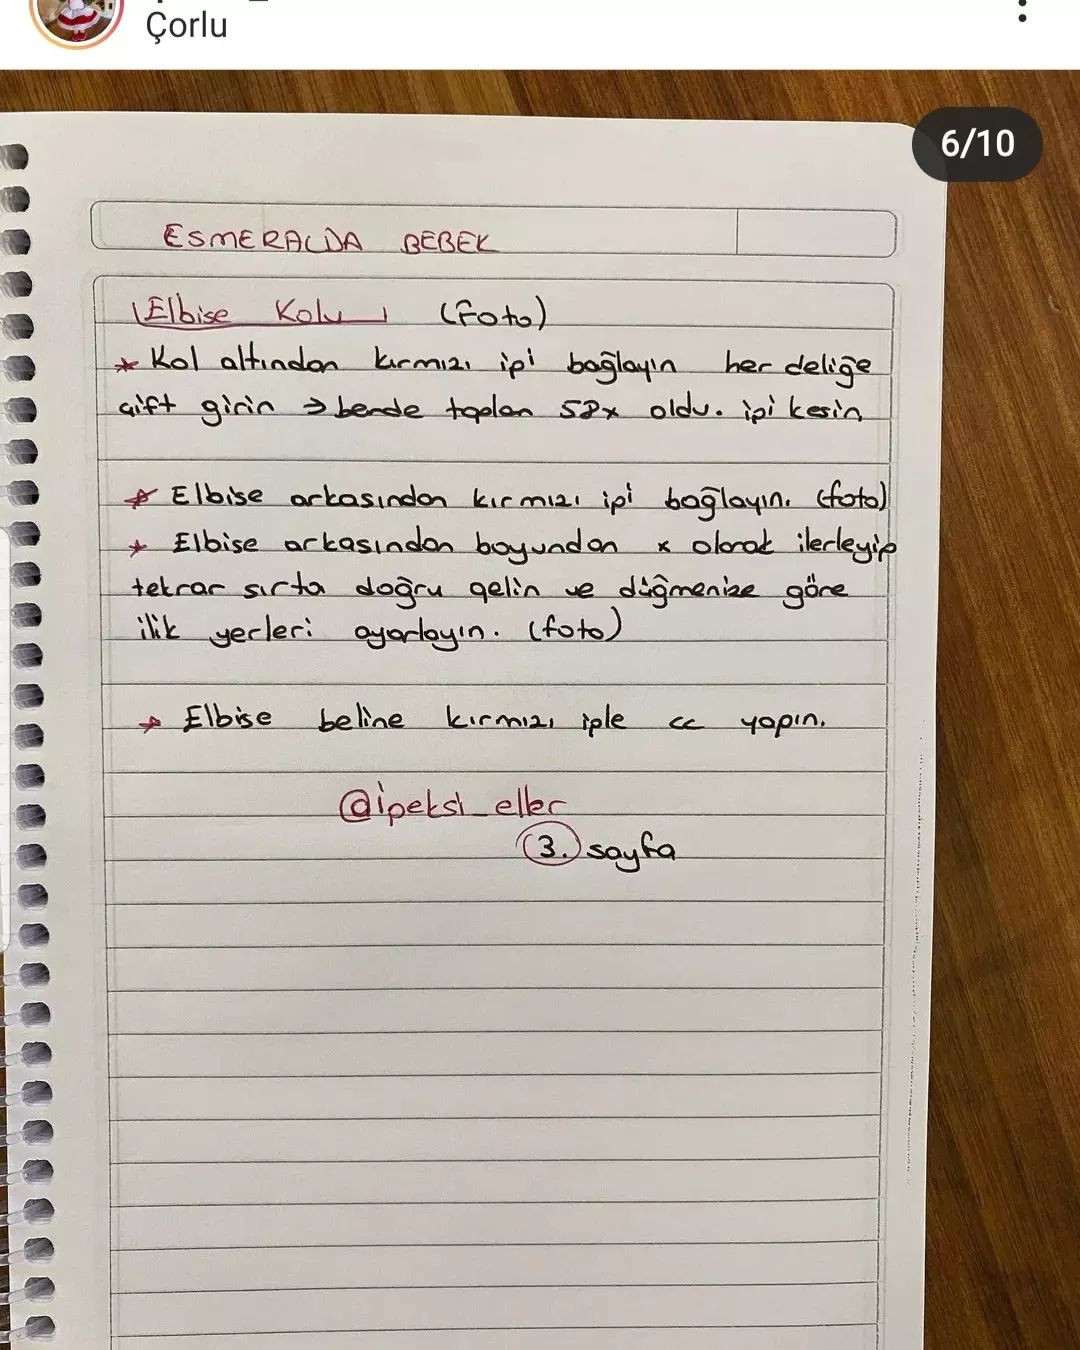 Çorlu
6/10
ESMERALDA BEBEK
Elbise Kolu (Foto)
* Kol altından kırmızı ipi bağlayın her deliğe
çift girin → bende toplam 58x oldu. ipi kesin
* Elbise arkasından kırmızı ipi bağlayın. (foto)
* Elbise arkasından boyundan x olarak ilerleyip
tekrar sırta doğru gelin ve düğmenize göre
ilik yerleri ayarlayın. (foto)
* Elbise beline kırmızı iple cc yapın.
@ipeksi_eller
3. sayfa